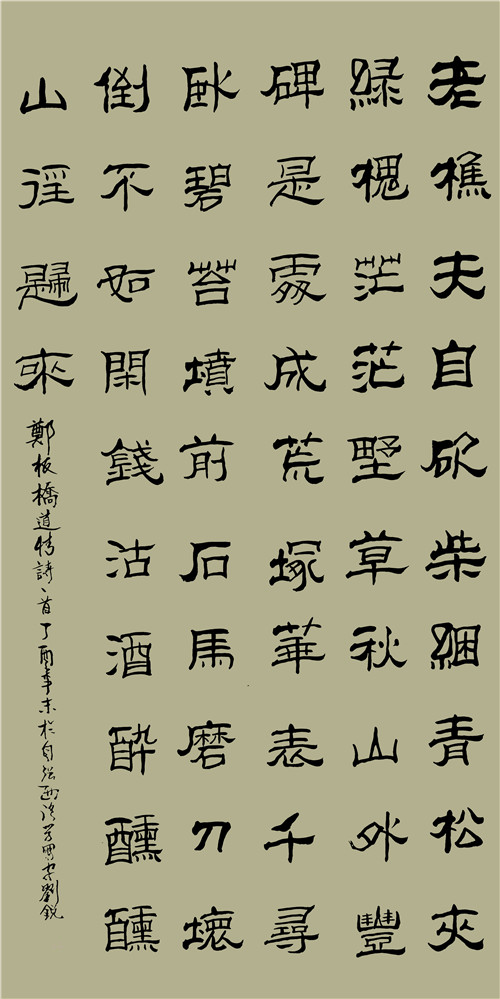 老樵夫自砍柴綑青松夾
緑槐茫茫野草秋山外豐
碑是處成荒塚華表千尋
臥碧苔墳前石馬磨刀壞
倒不如閑錢沽酒醉醺醺
山徑歸來
鄭板橋道情詩一首丁酉年末於劉銳